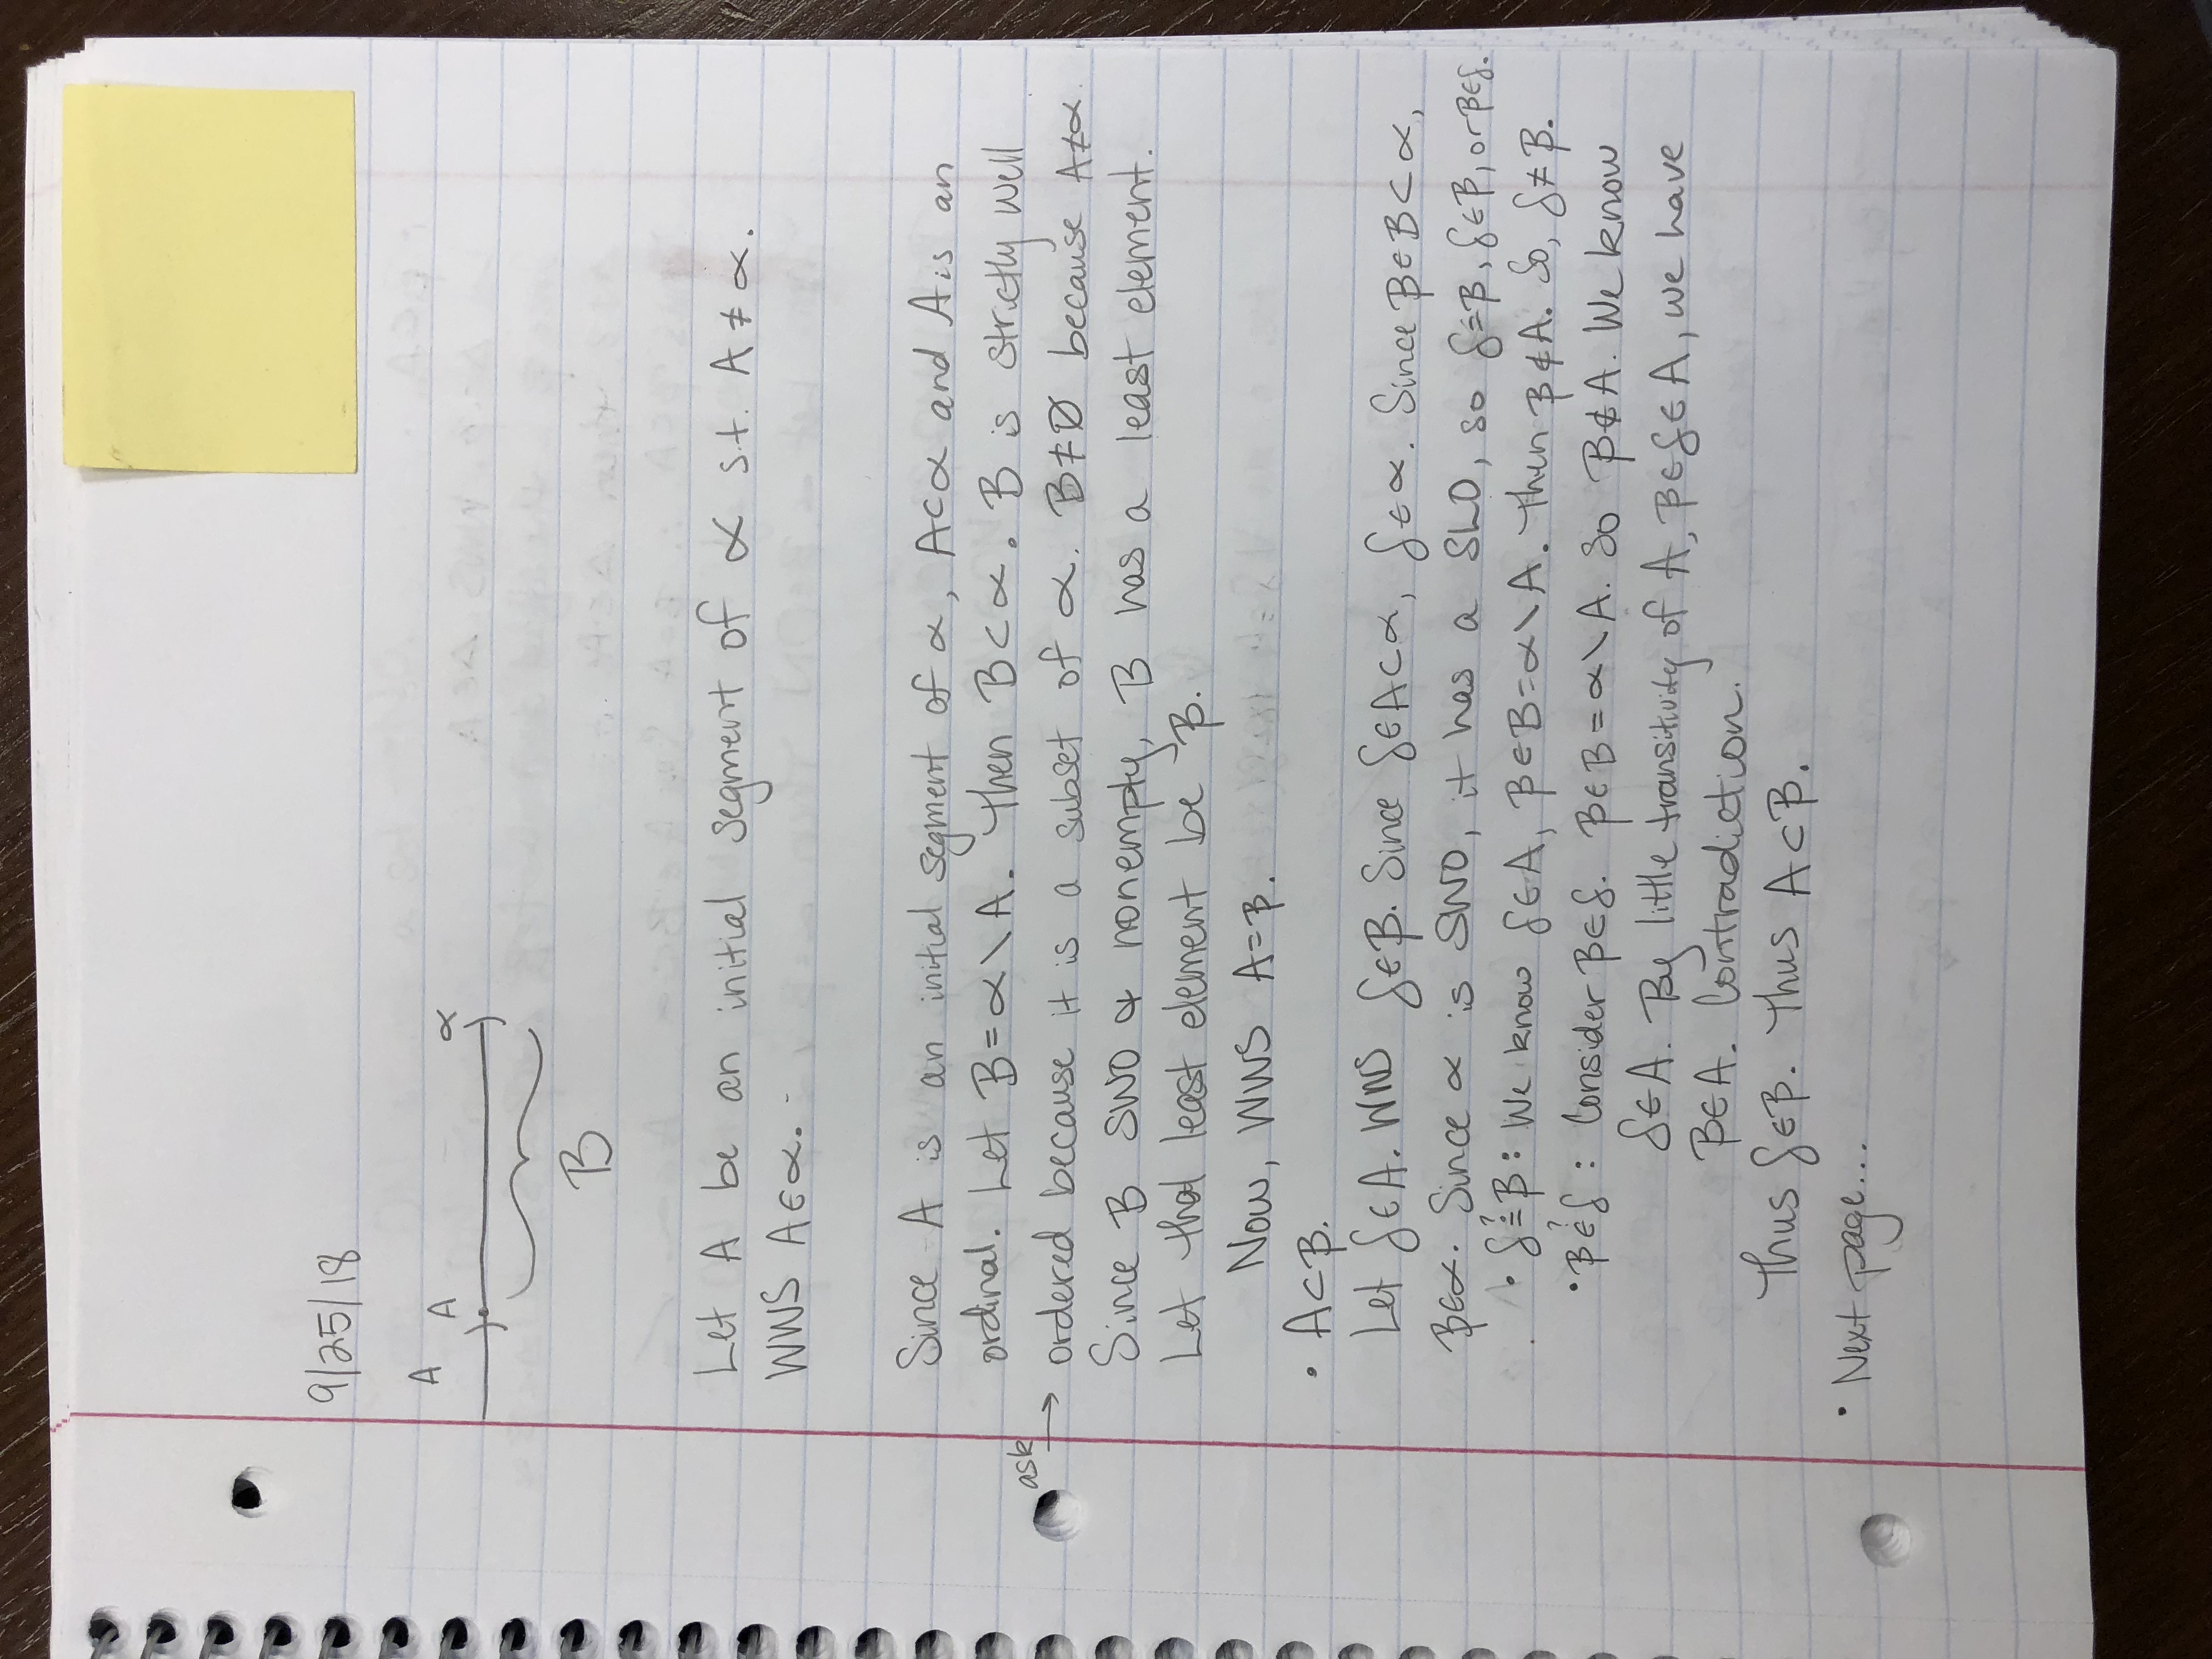 9/25/18
A A α
B
Let A be an initial segment of α s.t. A ≠ α.
WWS A∈α.
Since A is an initial segment of α, A⊂α and A is an
ordinal. Let B=α\A. Then B⊂α. B is strictly well
ask → ordered because it is a subset of α. B≠∅ because A≠α.
Since B SWO & nonempty, B has a least element.
Let that least element be β.
Now, WWS A=β.
• A⊂β.
Let δ∈A. WWS δ∈β. Since δ∈A⊂α, δ∈α. Since β∈B⊂α,
β∈α. Since α is SWO, it has a SLO, so δ=β, δ∈β, or β∈δ.
• δ≟β: We know δ∈A, β∈B=α\A. Then β∉A. So, δ≠β.
• β∈?δ: Consider β∈δ. β∈B=α\A. So β∉A. We know
δ∈A. By little transitivity of A, β∈δ∈A, we have
β∈A. Contradiction.
Thus δ∈β. Thus A⊂β.
• Next page...